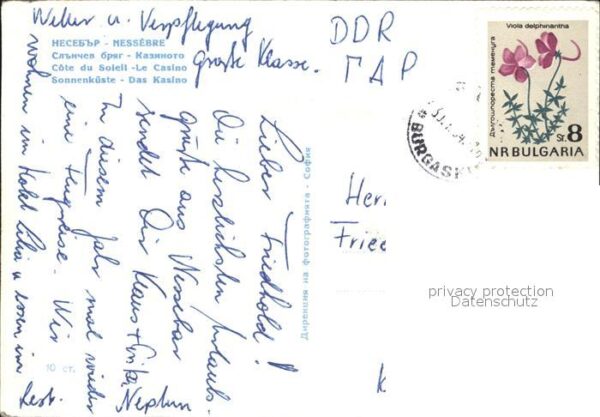 Wetter u. Verpflegung
große Klasse.
НЕСЕБЪР - NESSÈBRE
Слънчев бряг - Казиното
Côte du Soleil - Le Casino
Sonnenküste - Das Kasino
DDR
ГДР
Viola delphinantha
Дългошпореста теменуга
St 8
NR BULGARIA
BURGAS
Lieber Friedhold!
Die herzlichsten Urlaubs-
grüße aus Nessebar
sendet Dir Klaus + Erika
In diesem Jahr mal wieder
eine Flugreise. Wir
wohnen im Hotel Lilia u. essen im
Rest. Neptun
Дирекция на фотографията - София
10 ст.
Herr
Friee
k
privacy protection
Datenschutz